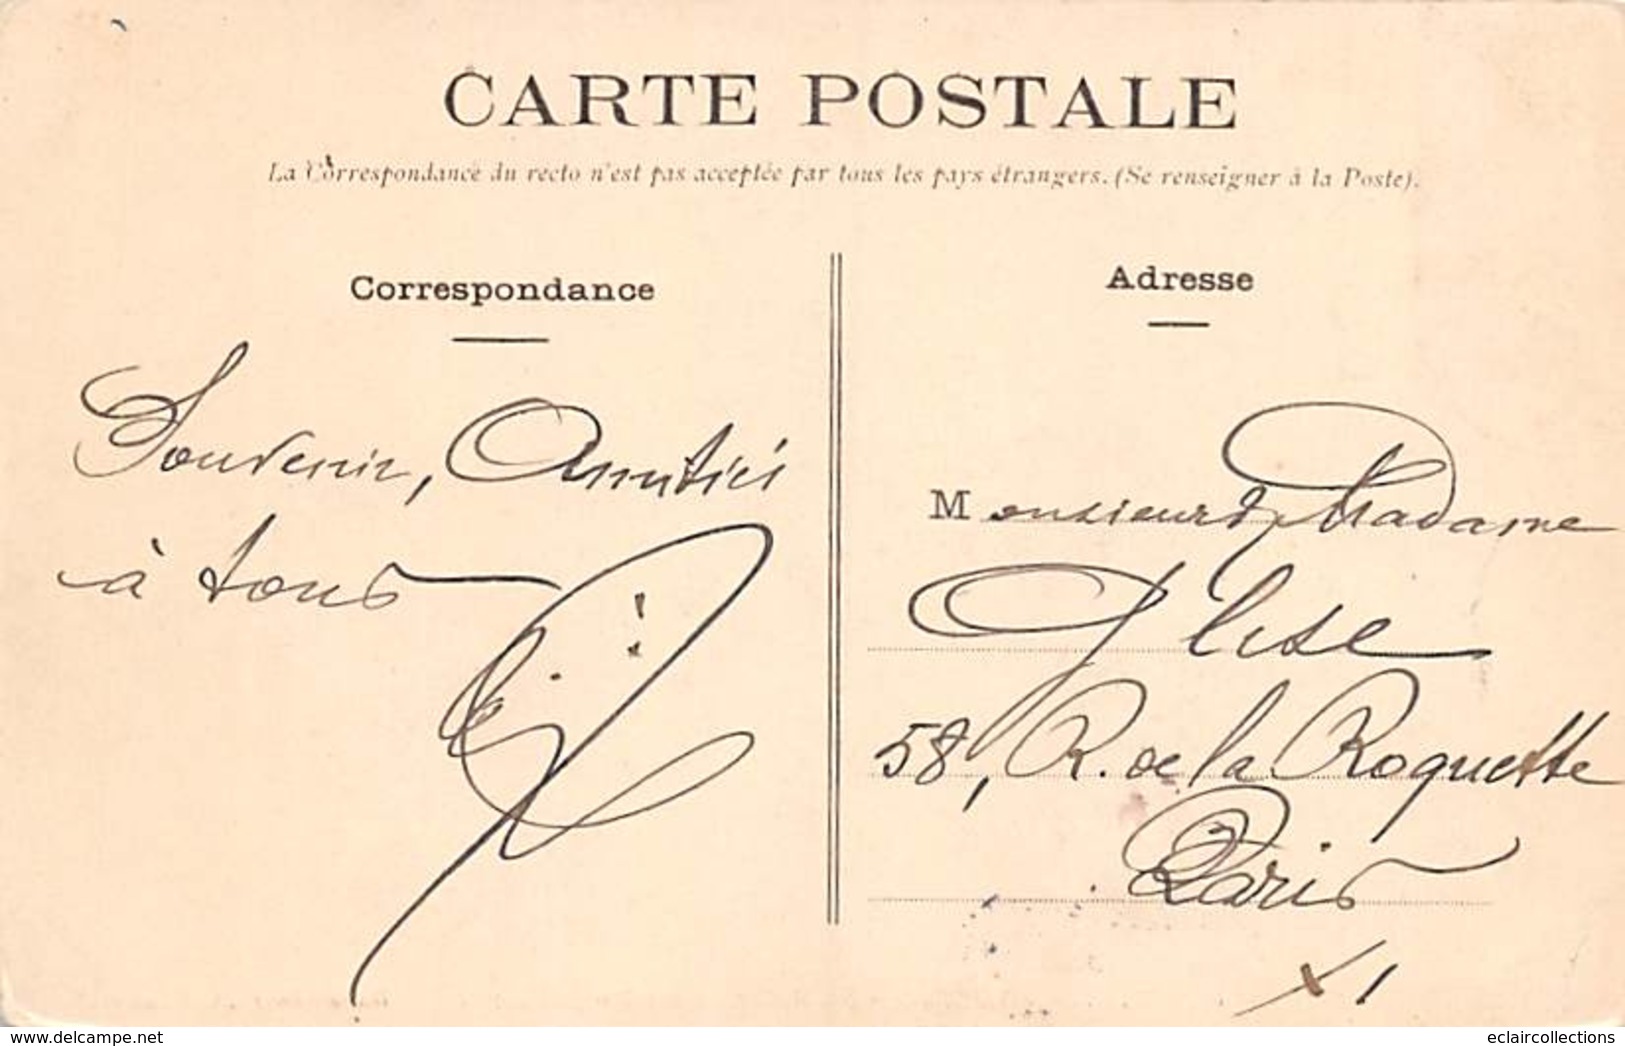 CARTE POSTALE
La Correspondance du recto n'est pas acceptée par tous les pays étrangers. (Se renseigner à la Poste).
Correspondance
Souvenir, Amitiés
à tous
Adresse
Monsieur & Madame
58, R. de la Roquette
Paris
XI
www.delcampe.net
eclaircollections